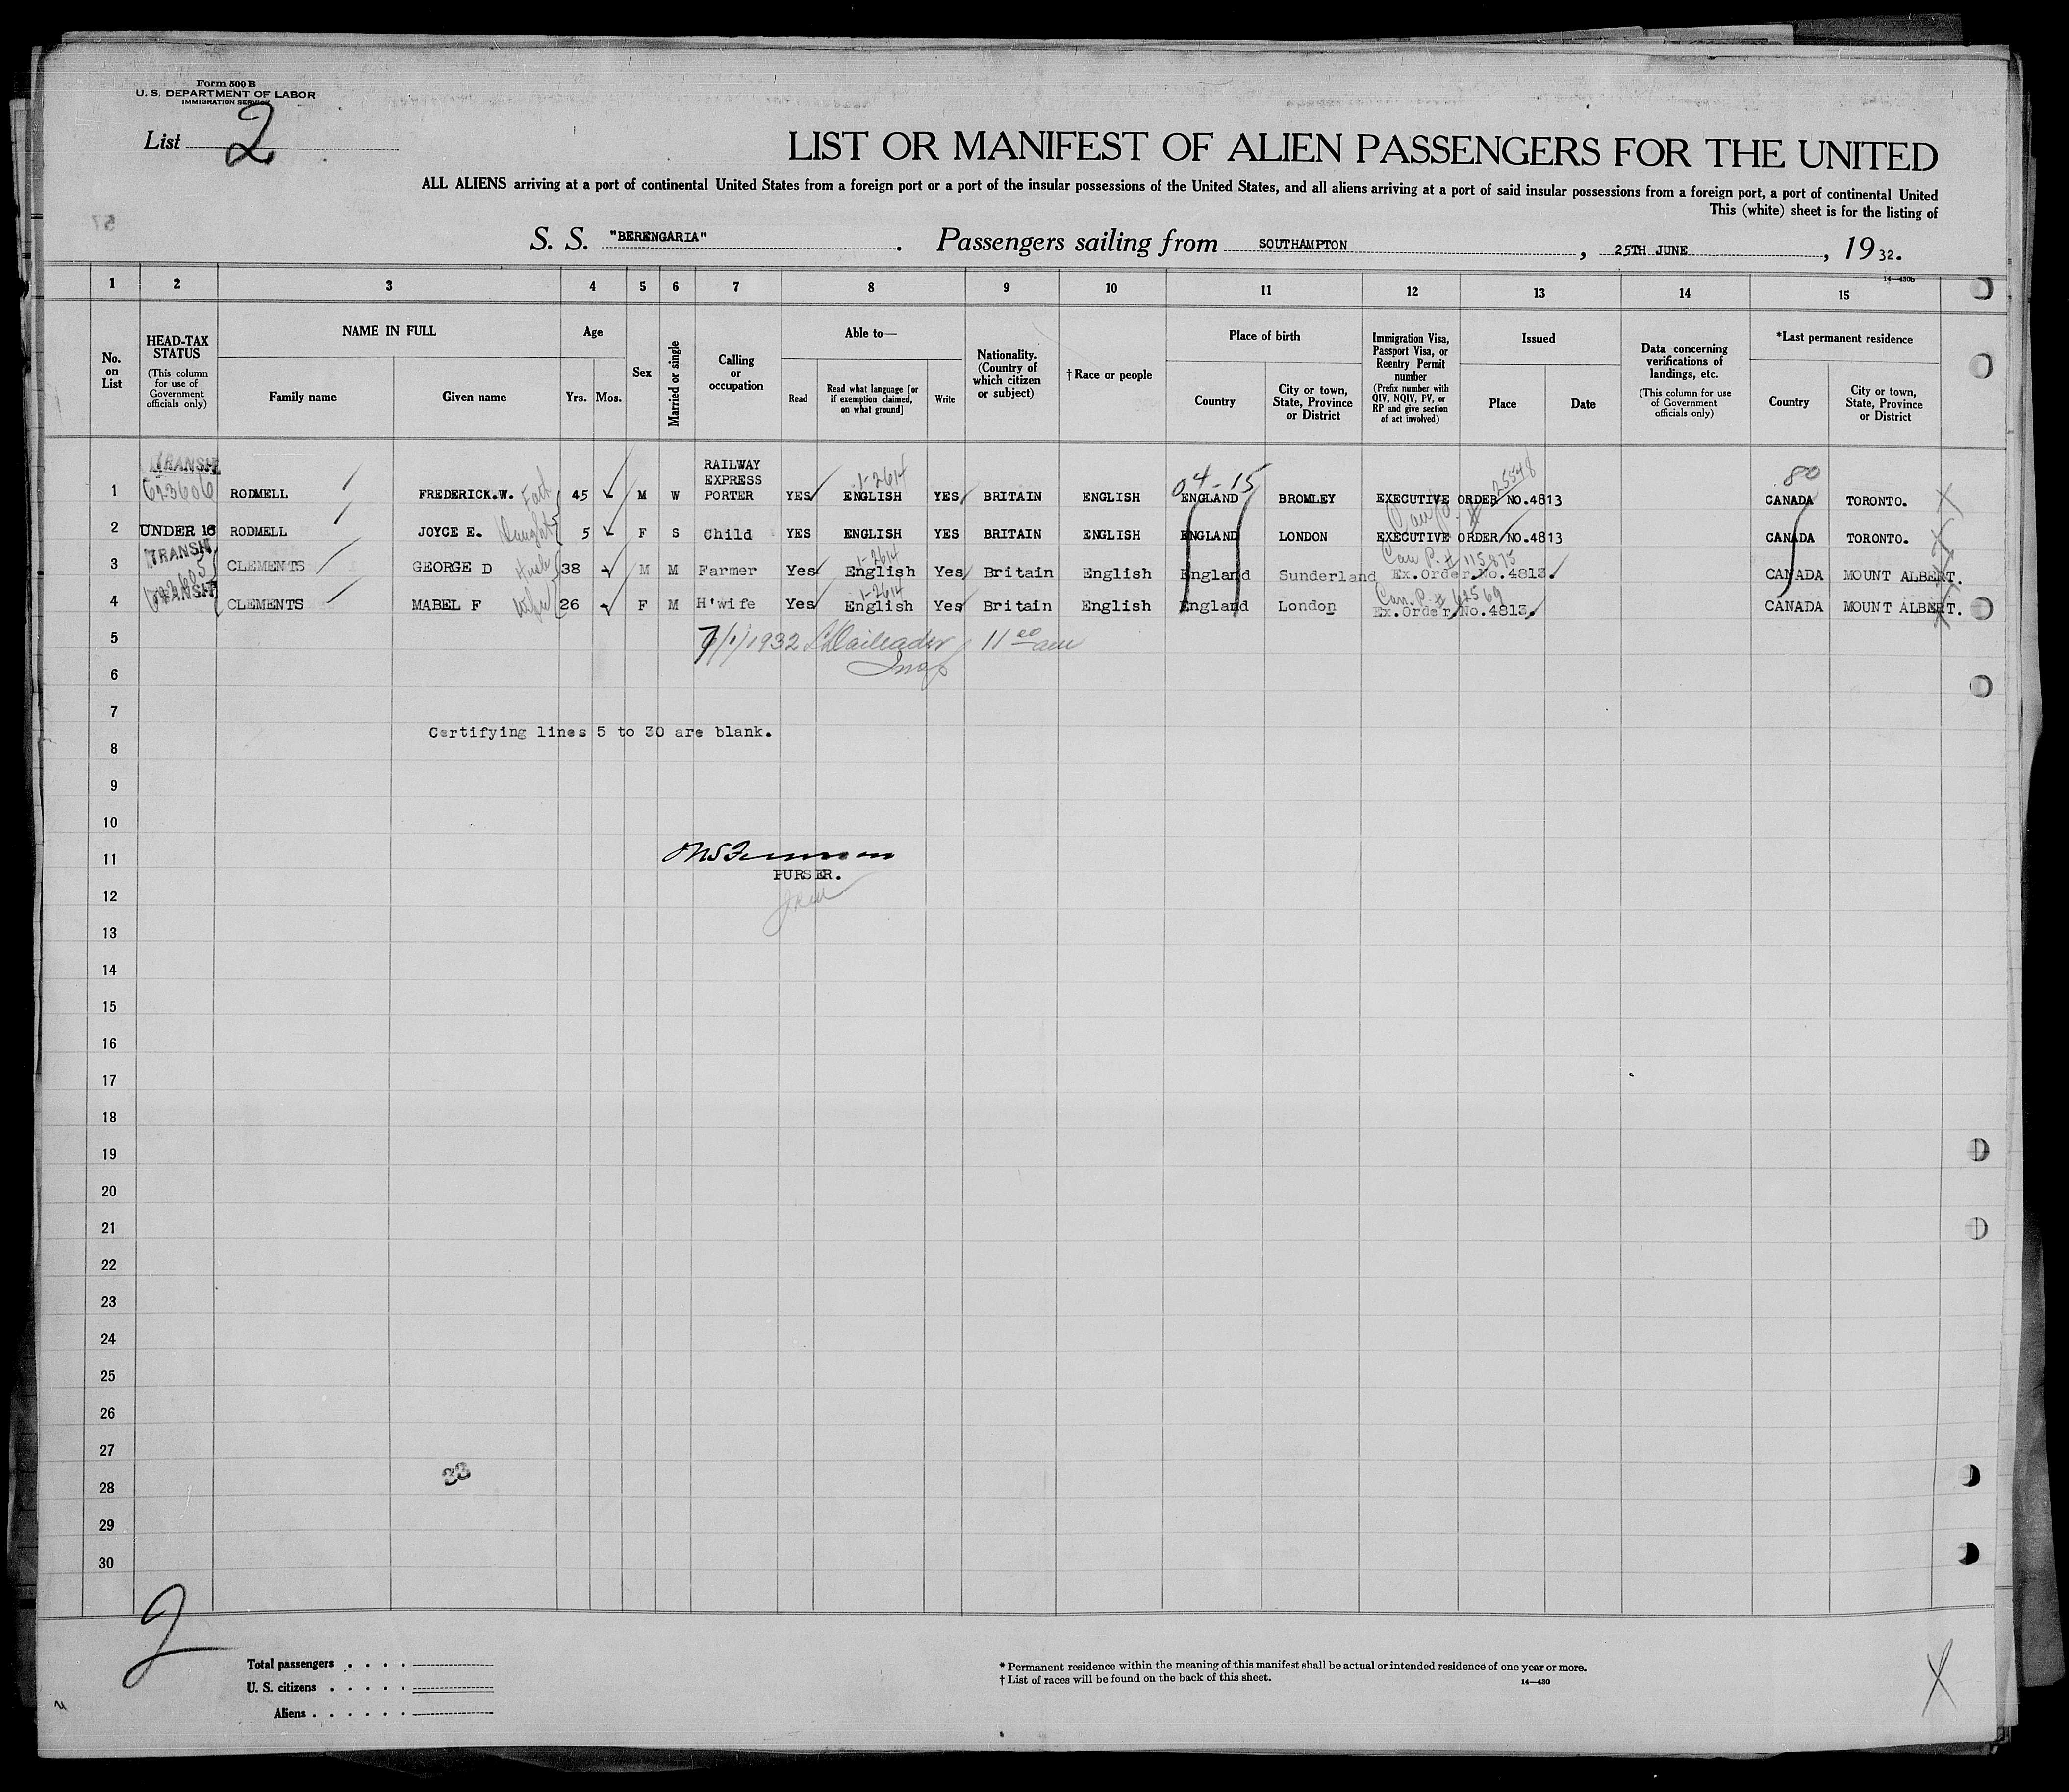 Form 500 B
U. S. DEPARTMENT OF LABOR
IMMIGRATION SERVICE
List 2
LIST OR MANIFEST OF ALIEN PASSENGERS FOR THE UNITED
ALL ALIENS arriving at a port of continental United States from a foreign port or a port of the insular possessions of the United States, and all aliens arriving at a port of said insular possessions from a foreign port, a port of continental United
This (white) sheet is for the listing of
57
S. S. "BERENGARIA". Passengers sailing from SOUTHAMPTON, 25TH JUNE, 1932.
14—430b
1 2 3 4 5 6 7 8 9 10 11 12 13 14 15
No. on List
HEAD-TAX STATUS (This column for use of Government officials only)
NAME IN FULL
Family name Given name
Age
Yrs. Mos.
Sex
Married or single
Calling or occupation
Able to—
Read
Read what language [or if exemption claimed, on what ground]
Write
Nationality. (Country of which citizen or subject)
† Race or people
Place of birth
Country
City or town, State, Province or District
Immigration Visa, Passport Visa, or Reentry Permit number (Prefix number with QIV, NQIV, PV, or RP and give section of act involved)
Issued
Place Date
Data concerning verifications of landings, etc. (This column for use of Government officials only)
*Last permanent residence
Country
City or town, State, Province or District
TRANSIT 1-2614 04-15 25548 80
1 623606 RODMELL FREDERICK.W. Fath 45 M W RAILWAY EXPRESS PORTER YES ENGLISH YES BRITAIN ENGLISH ENGLAND BROMLEY EXECUTIVE ORDER NO.4813 CANADA TORONTO.
2 UNDER 16 RODMELL JOYCE E. Daught 5 F S Child YES ENGLISH YES BRITAIN ENGLISH ENGLAND LONDON EXECUTIVE ORDER NO.4813 CANADA TORONTO.
TRANSIT 1-2614 Can P. # 115875
3 CLEMENTS GEORGE D Husb 38 M M Farmer Yes English Yes Britain English England Sunderland Ex.Order.No.4813. CANADA MOUNT ALBERT.
TRANSIT 1-2614 Can. P. # 62569
4 CLEMENTS MABEL F Wife 26 F M H'wife Yes English Yes Britain English England London Ex.Order No.4813. CANADA MOUNT ALBERT.
5 7/1/1932 11 00 am
6 Insp
7
Certifying lines 5 to 30 are blank.
8
9
10
11
PURSER.
12
13
14
15
16
17
18
19
20
21
22
23
24
25
26
27
33
28
29
30
2
Total passengers
U. S. citizens
Aliens
* Permanent residence within the meaning of this manifest shall be actual or intended residence of one year or more.
† List of races will be found on the back of this sheet.
14—430
X